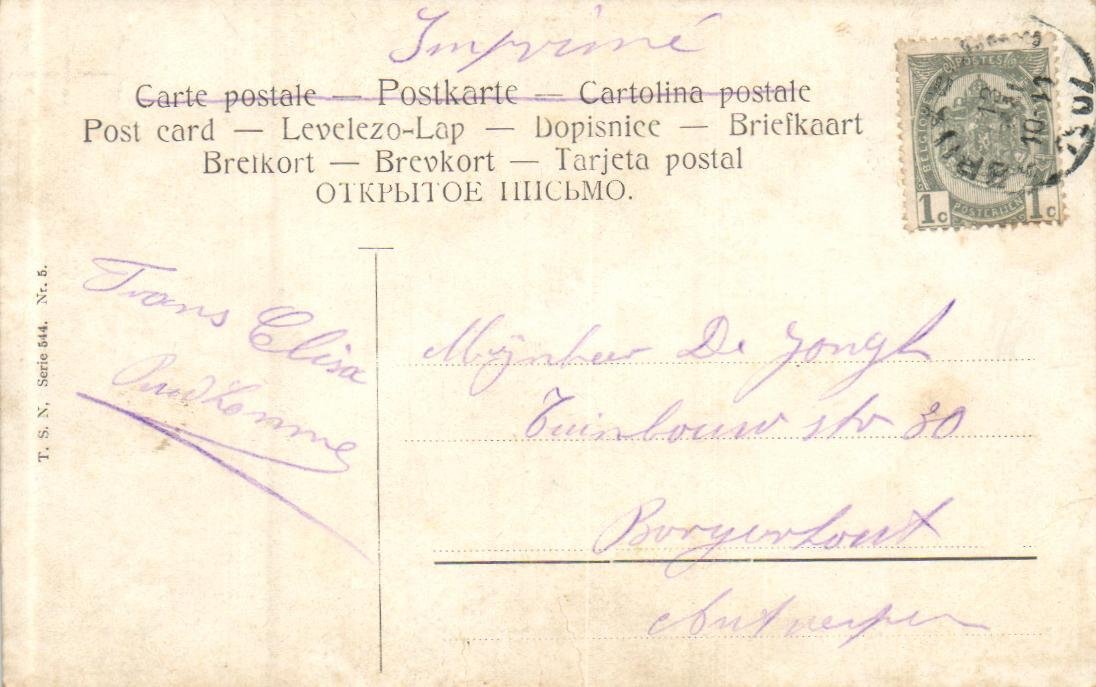 Imprimé
Carte postale — Postkarte — Cartolina postale
Post card — Levelezo-Lap — Dopisnice — Briefkaart
Brefkort — Brevkort — Tarjeta postal
ОТКРЫТОЕ ПИСЬМО.
POSTES
BELGIQUE
1c POSTERIJEN 1c
10-11
07
T. S. N, Serie 544. Nr. 5.
Frans Elisa
Prudhomme
Mijnheer De Jongh
Tuinbouw str 30
Borgerhout
Antwerpen